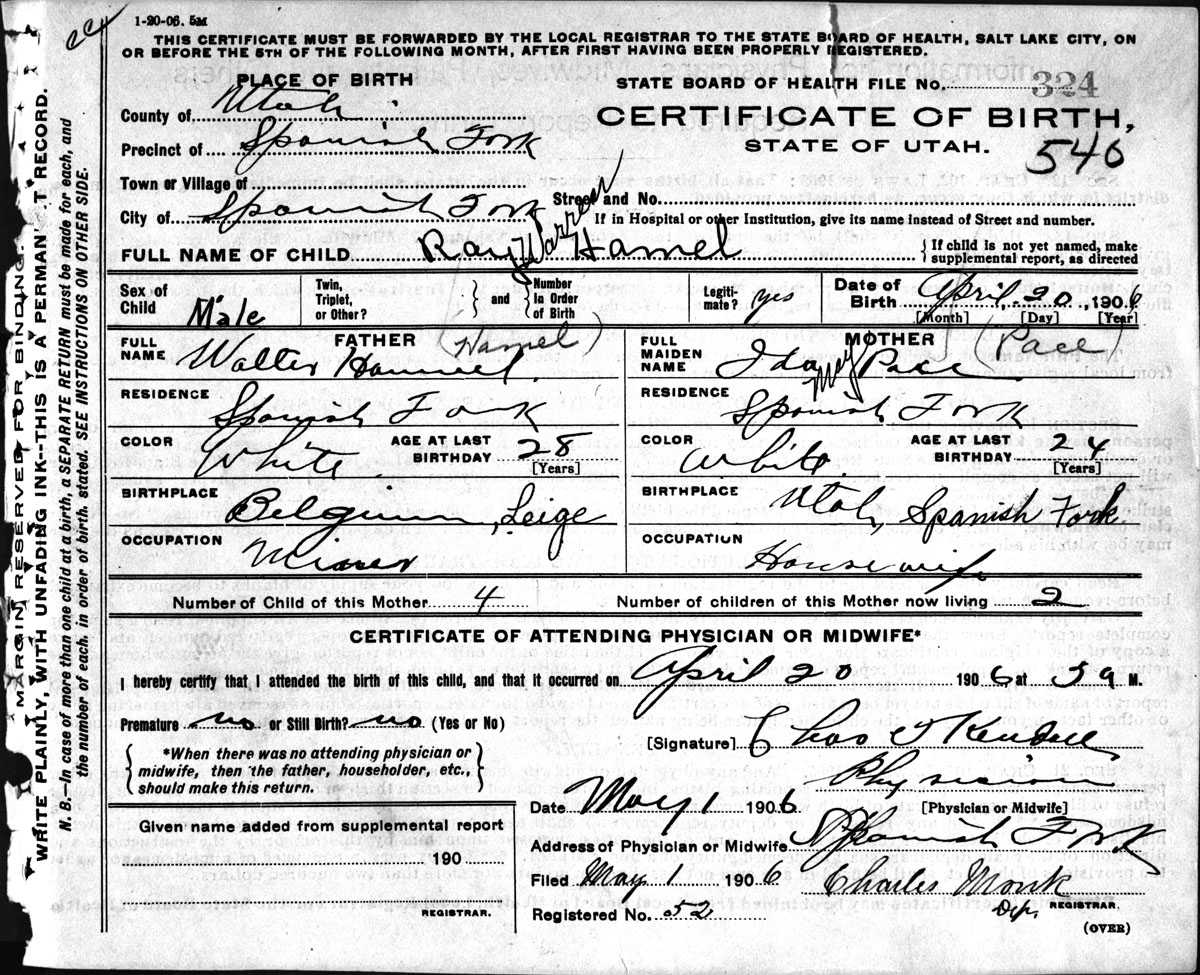 1-20-06. 5M
THIS CERTIFICATE MUST BE FORWARDED BY THE LOCAL REGISTRAR TO THE STATE BOARD OF HEALTH, SALT LAKE CITY, ON
OR BEFORE THE 5TH OF THE FOLLOWING MONTH, AFTER FIRST HAVING BEEN PROPERLY REGISTERED.
PLACE OF BIRTH
STATE BOARD OF HEALTH FILE NO. 324
County of Utah
CERTIFICATE OF BIRTH,
Precinct of Spanish Fork
STATE OF UTAH.
546
Town or Village of
Street and No.
City of Spanish Fork
If in Hospital or other Institution, give its name instead of Street and number.
FULL NAME OF CHILD Ray Warren Hamel
{If child is not yet named, make
supplemental report, as directed
Sex of Child Male
Twin, Triplet, or Other?
and
Number In Order of Birth
Legiti-mate? yes
Date of Birth April 20, 1906
[Month] [Day] [Year]
FATHER (Hamel)
FULL NAME Walter Hammel
MOTHER (Pace)
FULL MAIDEN NAME Ida May Pace
RESIDENCE Spanish Fork
RESIDENCE Spanish Fork
COLOR White
AGE AT LAST BIRTHDAY 28 [Years]
COLOR White
AGE AT LAST BIRTHDAY 24 [Years]
BIRTHPLACE Belgium, Leige
BIRTHPLACE Utah, Spanish Fork
OCCUPATION Miner
OCCUPATION Housewife
Number of Child of this Mother 4
Number of children of this Mother now living 2
CERTIFICATE OF ATTENDING PHYSICIAN OR MIDWIFE*
I hereby certify that I attended the birth of this child, and that it occurred on April 20 1906 at 3 a M.
Premature no or Still Birth? no (Yes or No)
{*When there was no attending physician or
midwife, then the father, householder, etc.,
should make this return.}
[Signature] Chas Kendall
Physician
[Physician or Midwife]
Date May 1 1906
Given name added from supplemental report
190
REGISTRAR.
Address of Physician or Midwife Spanish Fork
Filed May 1 1906
Charles Monk
Dep. REGISTRAR.
Registered No. 52
(OVER)
MARGIN RESERVED FOR BINDING.
WRITE PLAINLY, WITH UNFADING INK--THIS IS A PERMANENT RECORD.
N. B.—In case of more than one child at a birth, a SEPARATE RETURN must be made for each, and
the number of each, in order of birth, stated. SEE INSTRUCTIONS ON OTHER SIDE.